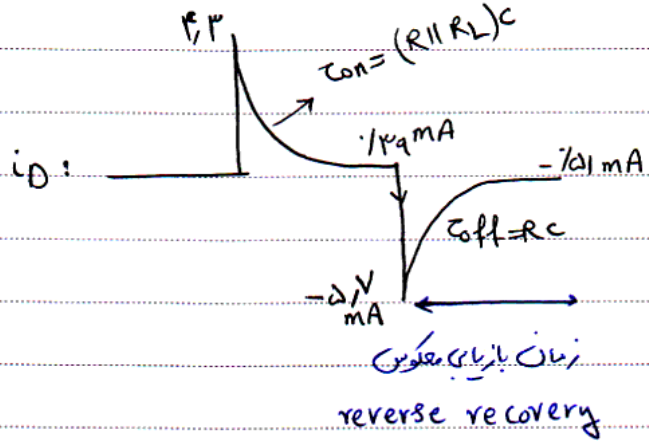 ۴,۳
τon = (R||RL)C
۰/۳۹ mA
iD :
-۰/۵۱ mA
τoff = RC
-۵,۷
mA
زمان بازیابی معکوس
reverse recovery